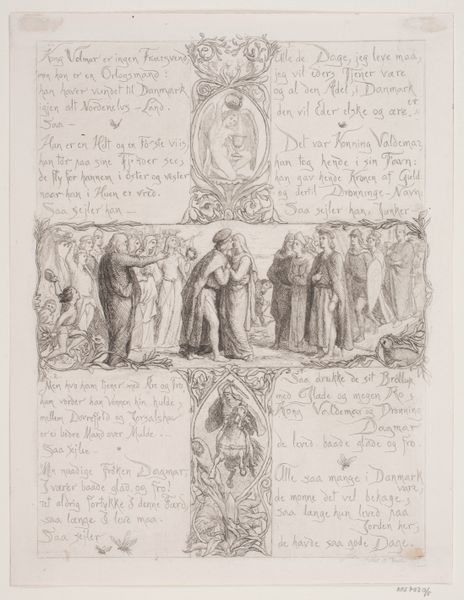 Kong Volmar er ingen
men han er en Orlogsmand:
han haver vundet til Danmark
igjen alt Nordenelvs-Land.
Saa —
Han er en Helt og en Første viis
han tør paa sine Tjener see,
de fly for hannem i öster og vester
naar han i Huen er vred.
Saa sejler han —
Alle de Dage, jeg leve maa,
jeg vil eders Tjener være
og al den Adel, i Danmark er
den vil Eder elske og ære.
Det var Konning Valdemar
han tog hende i sin Favn:
han gav hende Kronen af Guld
og dertil Dronnings-Navn.
Saa sejler han, Junker
Men hvo ham tjener med Ære og Tro
ham vorder han vennen hin hulde
mellem og
er ei bedre Mand over Mulde.
Saa
Min naadige Frøken Dagmar,
I værer baade glad og fro!
ret aldrig fortykke I denne Færd,
saa længe I leve maa.
Saa sejler
Saa drukke de sit Bröllup
med Glæde og megen Ro,
Kong Valdemar og Dronning
Dagmar
de leved baade glade og fro.
Alle saa mange i Danmark
vare,
de monne det vel behage,
saa længe hun leved paa
Jorden her,
de havde saa gode Dage.